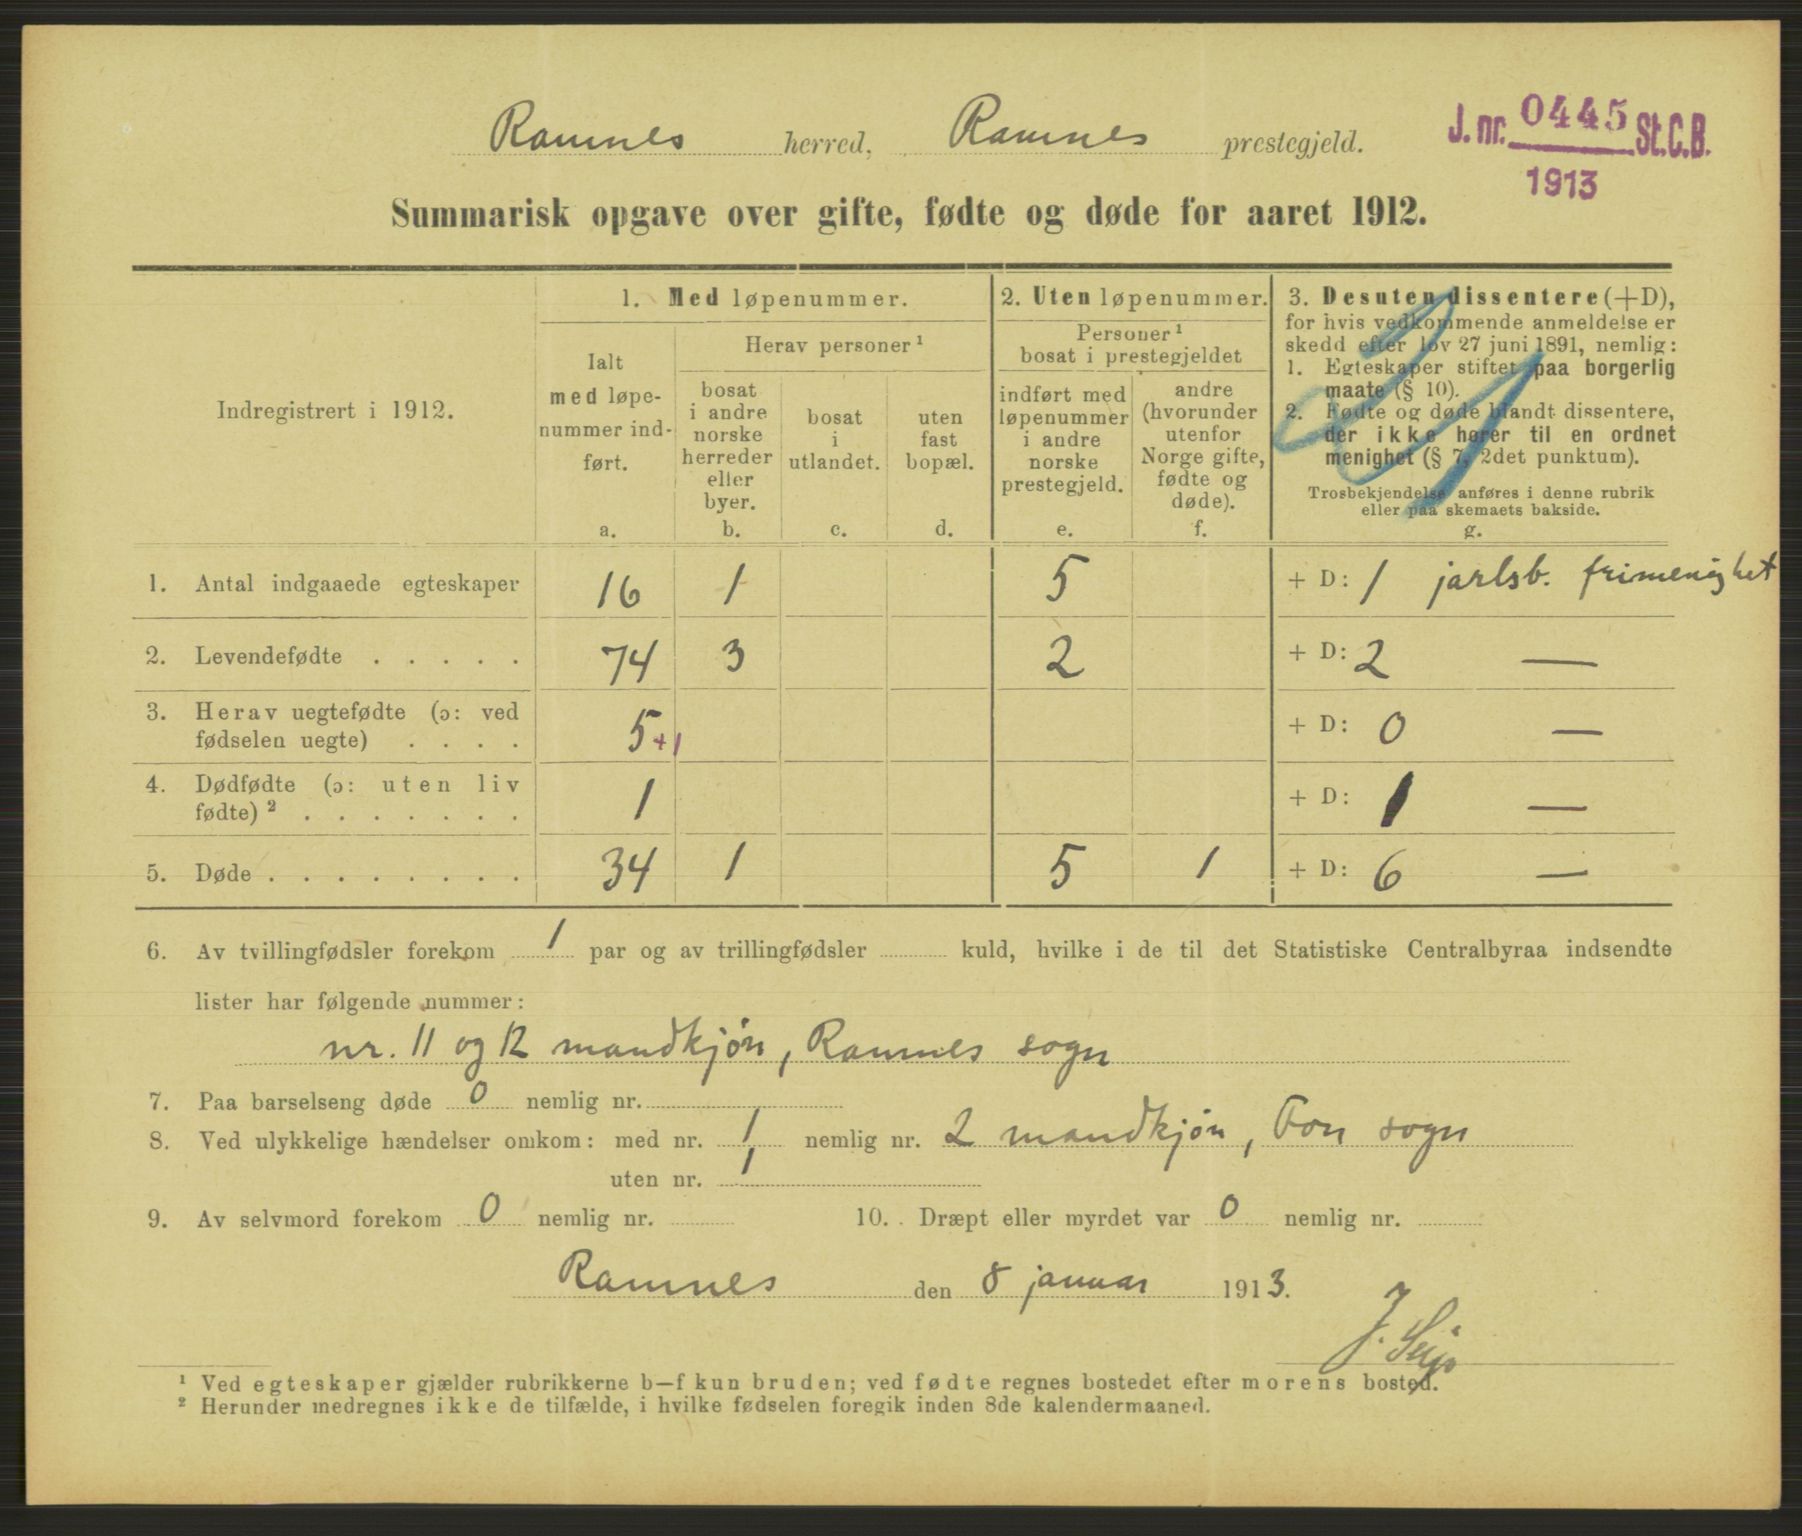 Ramnes herred, Ramnes prestegjeld.
J. nr. 0445 St. C. B.
1913
Summarisk opgave over gifte, fødte og døde for aaret 1912.
Indregistrert i 1912.
1. Med løpenummer.
Ialt
med løpe-
nummer ind-
ført.
a.
Herav personer ¹
bosat
i andre
norske
herreder
eller
byer.
b.
bosat
i
utlandet.
c.
uten
fast
bopæl.
d.
2. Uten løpenummer.
Personer ¹
bosat i prestegjeldet
indført med
løpenummer
i andre
norske
prestegjeld.
e.
andre
(hvorunder
utenfor
Norge gifte,
fødte og
døde).
f.
3. Desuten dissentere (+D),
for hvis vedkommende anmeldelse er
skedd efter lov 27 juni 1891, nemlig:
1. Egteskaper stiftet paa borgerlig
maate (§ 10).
2. Fødte og døde blandt dissentere,
der ikke hører til en ordnet
menighet (§ 7, 2det punktum).
Trosbekjendelse anføres i denne rubrik
eller paa skemaets bakside.
g.
1. Antal indgaaede egteskaper 16 1 5 + D: 1 jarlsb. frimenighet
2. Levendefødte . . . . . 74 3 2 + D: 2 —
3. Herav uegtefødte (ɔ: ved
fødselen uegte) . . . . 5 +1 + D: 0 —
4. Dødfødte (ɔ: uten liv
fødte) ² . . . . . . . 1 + D: 1 —
5. Døde . . . . . . . . 34 1 5 1 + D: 6 —
6. Av tvillingfødsler forekom 1 par og av trillingfødsler kuld, hvilke i de til det Statistiske Centralbyraa indsendte
lister har følgende nummer:
nr. 11 og 12 mandkjøn, Ramnes sogn
7. Paa barselseng døde 0 nemlig nr.
8. Ved ulykkelige hændelser omkom: med nr. 1 nemlig nr. 2 mandkjøn, Fon sogn
uten nr. 1
9. Av selvmord forekom 0 nemlig nr. 10. Dræpt eller myrdet var 0 nemlig nr.
Ramnes den 8 januar 1913.
J.
¹ Ved egteskaper gjælder rubrikkerne b—f kun bruden; ved fødte regnes bostedet efter morens bosted.
² Herunder medregnes ikke de tilfælde, i hvilke fødselen foregik inden 8de kalendermaaned.